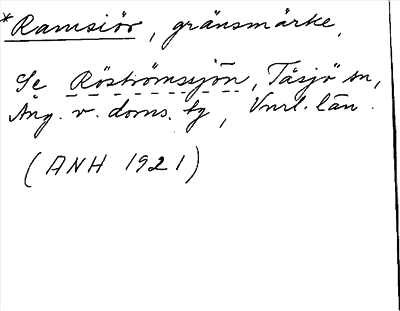 *Ramsiör, gränsmärke,
Se Röströmssjön, Tåsjö sn,
Ång. v. doms. tg, Vnrl. län.
(ANH 1921)